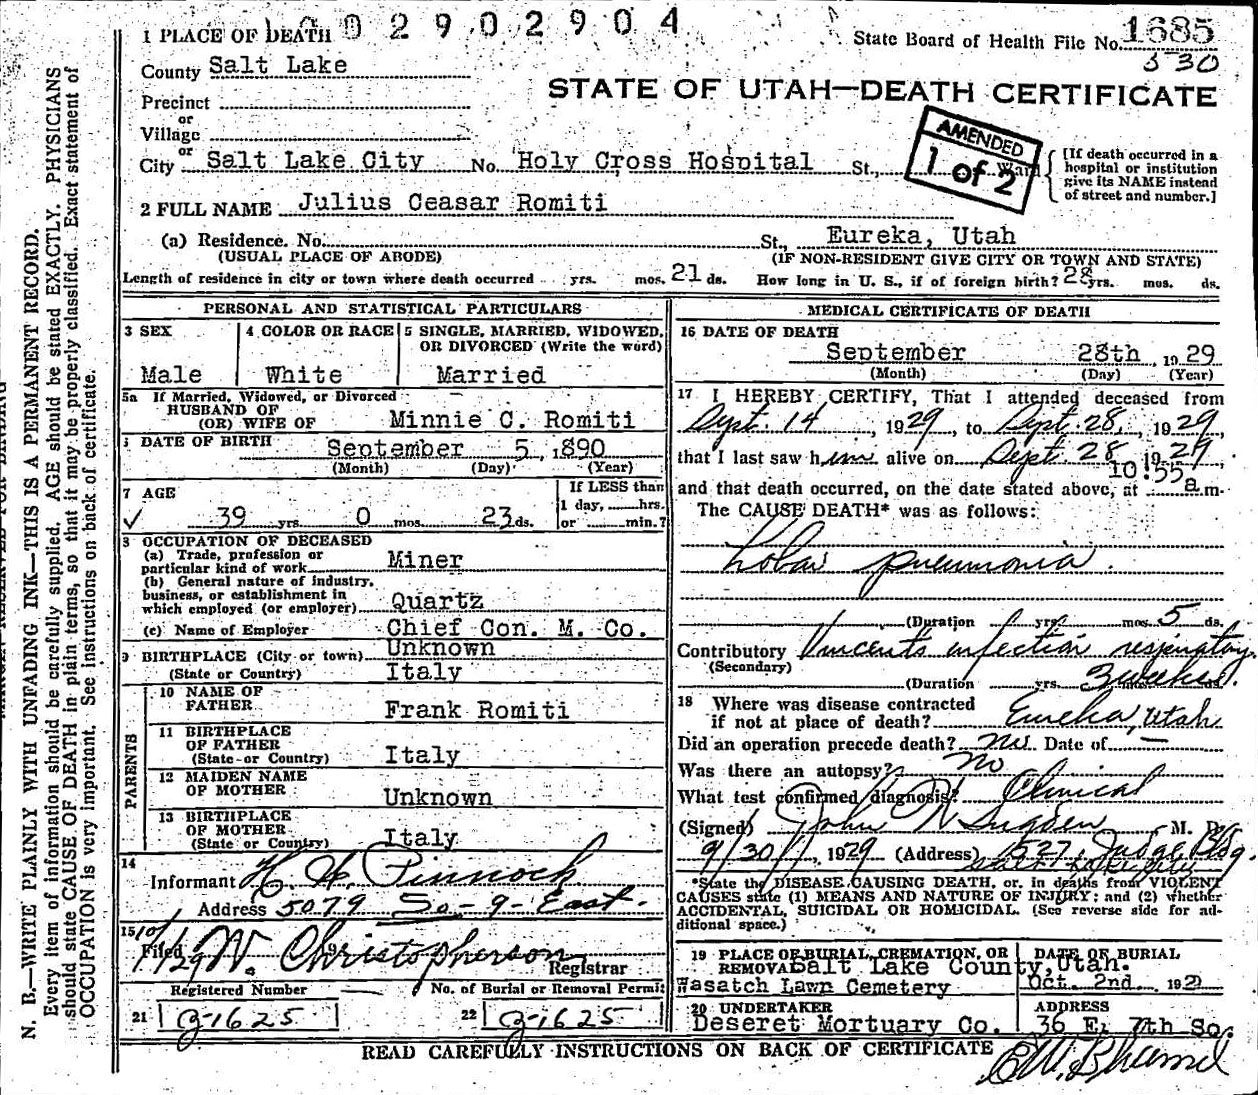 002902904
1 PLACE OF DEATH
State Board of Health File No. 1685
530
County Salt Lake
STATE OF UTAH—DEATH CERTIFICATE
Precinct
or
Village
or
City Salt Lake City No. Holy Cross Hospital St., Ward
AMENDED
1 of 2
[If death occurred in a
hospital or institution
give its NAME instead
of street and number.]
2 FULL NAME Julius Ceasar Romiti
(a) Residence. No. St., Eureka, Utah
(USUAL PLACE OF ABODE) (IF NON-RESIDENT GIVE CITY OR TOWN AND STATE)
Length of residence in city or town where death occurred yrs. mos. 21 ds. How long in U. S., if of foreign birth? 28 yrs. mos. ds.
PERSONAL AND STATISTICAL PARTICULARS
3 SEX
Male
4 COLOR OR RACE
White
5 SINGLE, MARRIED, WIDOWED,
OR DIVORCED (Write the word)
Married
5a If Married, Widowed, or Divorced
HUSBAND OF
(OR) WIFE OF Minnie C. Romiti
DATE OF BIRTH September 5, 1890
(Month) (Day) (Year)
7 AGE
39 yrs 0 mos. 23 ds.
If LESS than
1 day, hrs.
or min.?
8 OCCUPATION OF DECEASED
(a) Trade, profession or
particular kind of work Miner
(b) General nature of industry,
business, or establishment in
which employed (or employer) Quartz
(c) Name of Employer Chief Con. M. Co.
9 BIRTHPLACE (City or town) Unknown
(State or Country) Italy
PARENTS
10 NAME OF
FATHER Frank Romiti
11 BIRTHPLACE
OF FATHER
(State or Country) Italy
12 MAIDEN NAME
OF MOTHER Unknown
13 BIRTHPLACE
OF MOTHER
(State or Country) Italy
14
Informant H. H. Pinnock
Address 5079 So-9-East.
15
Filed 10/1/29 W. Christopherson
Registrar
Registered Number No. of Burial or Removal Permit
21 B-1625 22 B-1625
MEDICAL CERTIFICATE OF DEATH
16 DATE OF DEATH
September 28th, 1929
(Month) (Day) (Year)
17 I HEREBY CERTIFY, That I attended deceased from
Sept. 14, 1929, to Sept. 28, 1929
that I last saw him alive on Sept. 28 1929,
and that death occurred, on the date stated above, at 10:55 a.m.
The CAUSE DEATH* was as follows:
Lobar pneumonia.
(Duration yrs. mos. 5 ds.
Contributory Vincents infection respiratory
(Secondary)
(Duration yrs. 3 weeks mos. ds.
18 Where was disease contracted
if not at place of death? Eureka, Utah
Did an operation precede death? no Date of —
Was there an autopsy? no
What test confirmed diagnosis? Clinical
(Signed) John W Sugden, M. D.
9/30/, 1929 (Address) 527, Judge Bldg.
Salt Lake City
*State the DISEASE CAUSING DEATH, or, in deaths from VIOLENT
CAUSES state (1) MEANS AND NATURE OF INJURY; and (2) whether
ACCIDENTAL, SUICIDAL OR HOMICIDAL. (See reverse side for ad-
ditional space.)
19 PLACE OF BURIAL, CREMATION, OR
REMOVAL Salt Lake County, Utah.
Wasatch Lawn Cemetery
DATE OF BURIAL
Oct. 2nd. 192
20 UNDERTAKER
Deseret Mortuary Co.
ADDRESS
36 E. 7th So.
READ CAREFULLY INSTRUCTIONS ON BACK OF CERTIFICATE
N. B.—WRITE PLAINLY WITH UNFADING INK—THIS IS A PERMANENT RECORD.
Every item of information should be carefully supplied. AGE should be stated EXACTLY. PHYSICIANS
should state CAUSE OF DEATH in plain terms, so that it may be properly classified. Exact statement of
OCCUPATION is very important. See instructions on back of certificate.